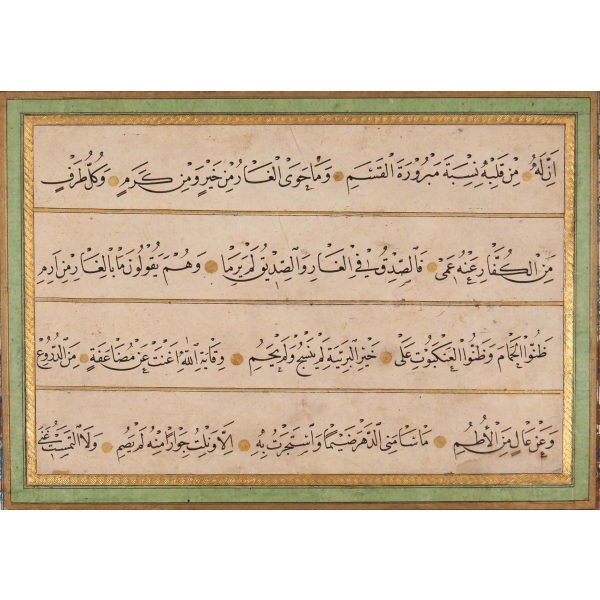 اَنَّ لَهُ مِنْ قَلْبِهِ نِسْبَةً مَبْرُورَةَ الْقَسَمِ وَمَا حَوَى الْغَارُ مِنْ خَيْرٍ وَمِنْ كَرَمٍ وَكُلُّ طَرْفٍ
مِنَ الْكُفَّارِ عَنْهُ عَمِى فَالصِّدْقُ فِى الْغَارِ وَالصِّدِّيقُ لَمْ يَرِمَا وَهُمْ يَقُولُونَ مَا بِالْغَارِ مِنْ اَرِمِ
ظَنُّوا الْحَمَامَ وَظَنُّوا الْعَنْكَبُوتَ عَلَى خَيْرِ الْبَرِيَّةِ لَمْ تَنْسُجْ وَلَمْ تَحُمِ وِقَايَةُ اللهِ اَغْنَتْ عَنْ مُضَاعَفَةٍ مِنَ الدُّرُوعِ
وَعَنْ عَالٍ مِنَ الْاُطُمِ مَا سَامَنِى الدَّهْرُ ضَيْمًا وَاسْتَجَرْتُ بِهِ اِلَّا وَنِلْتُ جِوَارًا مِنْهُ لَمْ يُضَمِ وَلَا الْتَمَسْتُ غِنَى